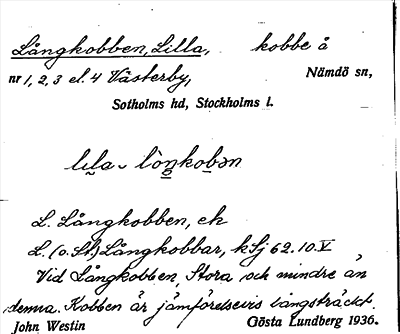 Långkobben, Lilla, kobbe å
nr 1, 2, 3 el. 4 Västerby, Nämdö sn,
Sotholms hd, Stockholms l.
lɩla - lòŋkobən
L. Långkobben, ek
L. (o. St.) Långkobbar, kSj 62. 10. V
Vid Långkobben, Stora och mindre än
denna. Kobben är jämförelsevis långsträckt.
John Westin Gösta Lundberg 1936.